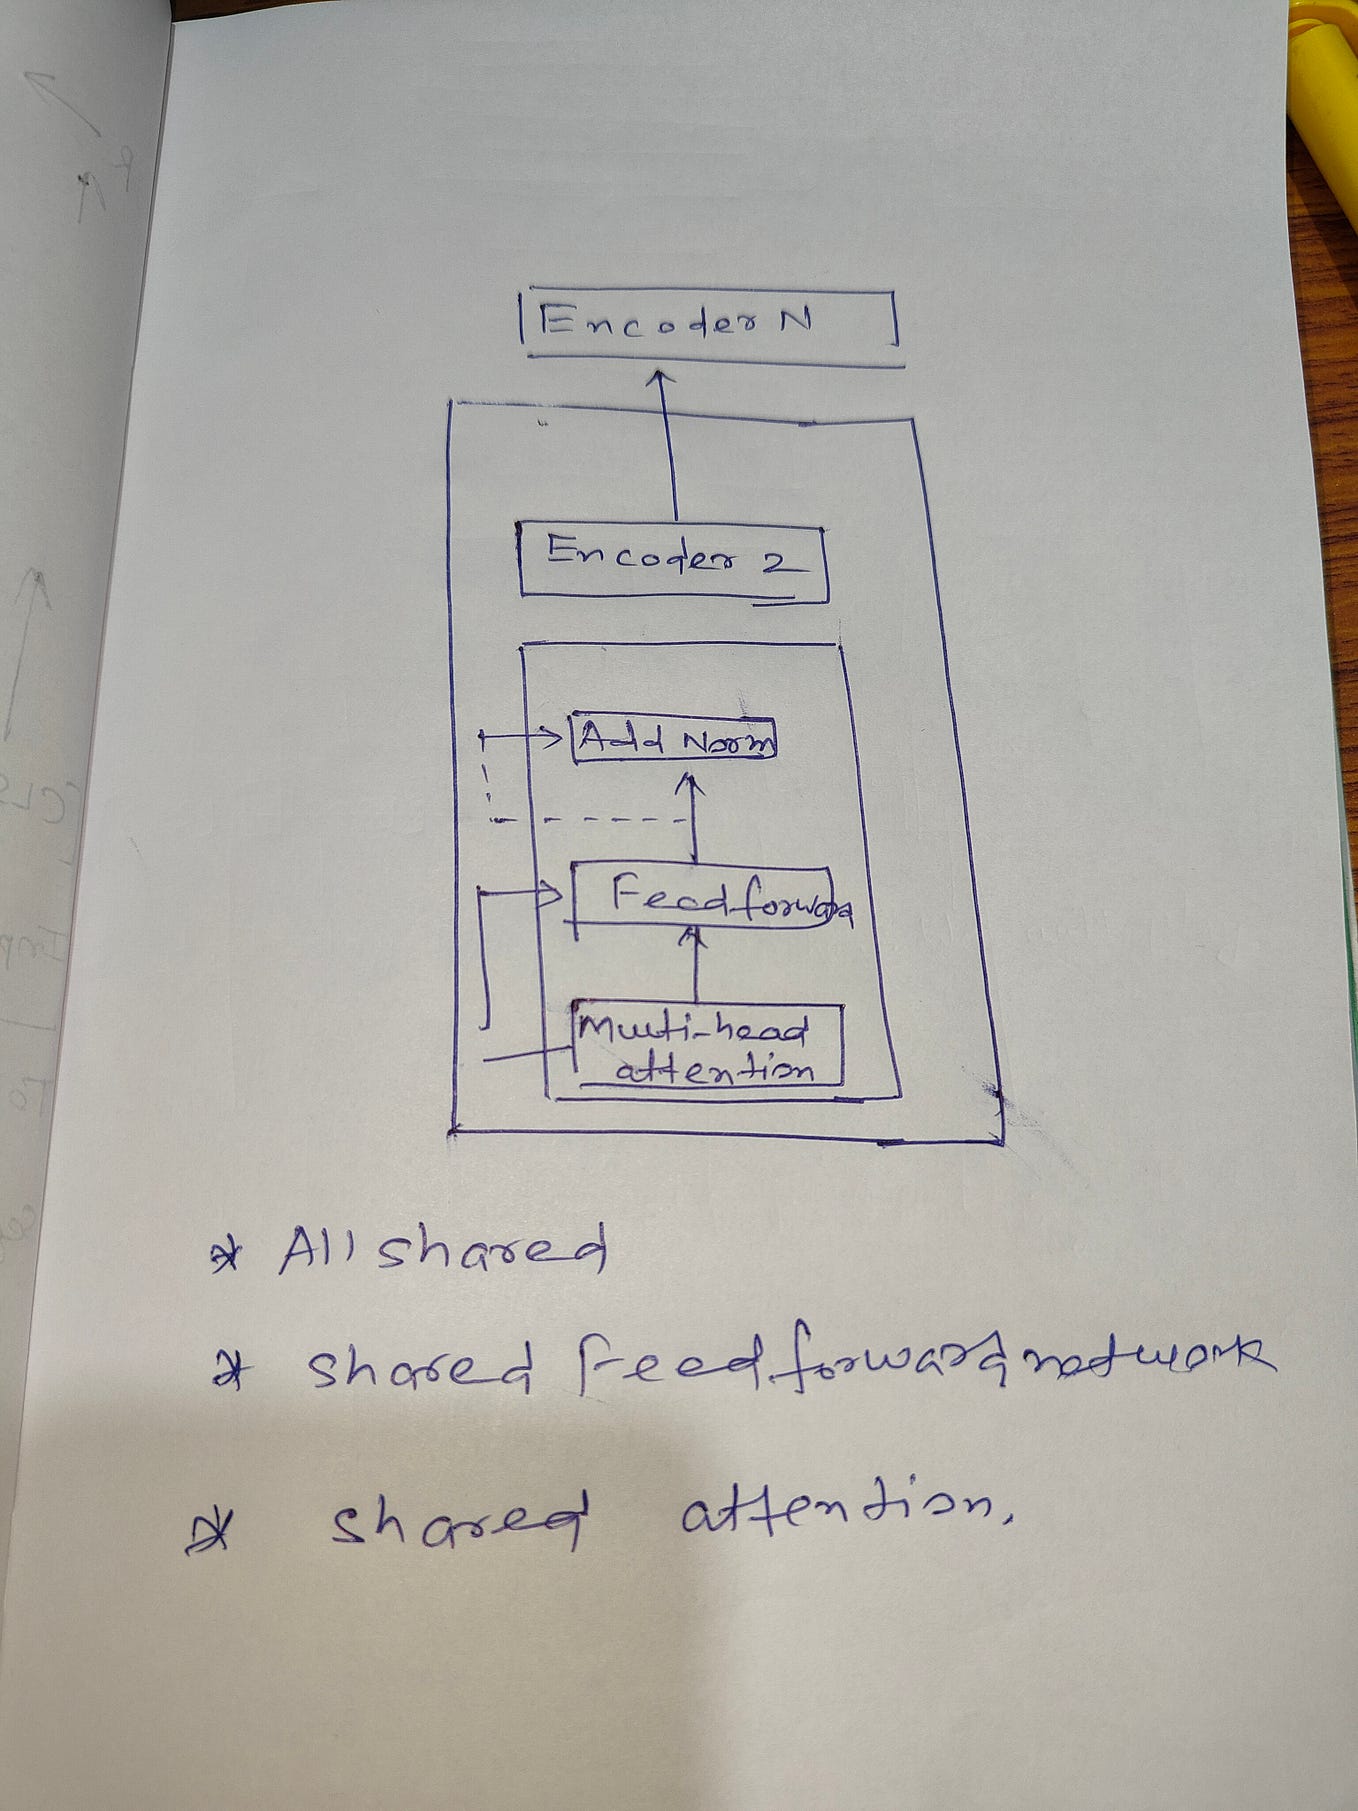 Encoder N
Encoder 2
Add Norm
Feed forward
Multi-head
attention
* All shared
* shared Feed forward network
* shared attention.